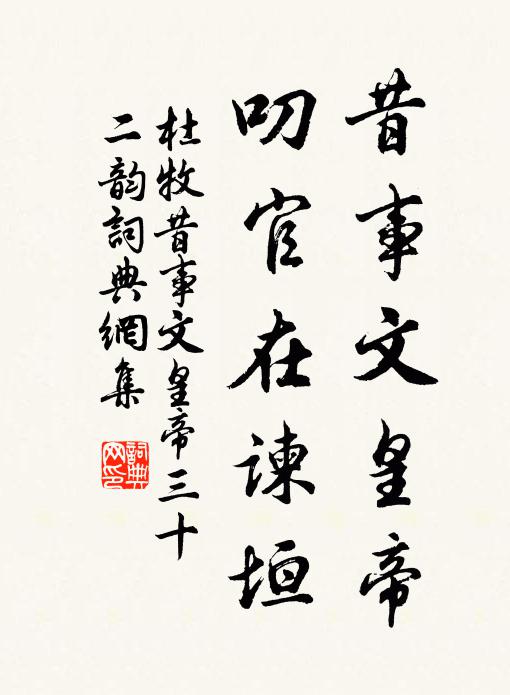 昔事文皇帝
叨官在諫垣
杜牧昔事文皇帝三十
二韵詞典網集
詞典網印